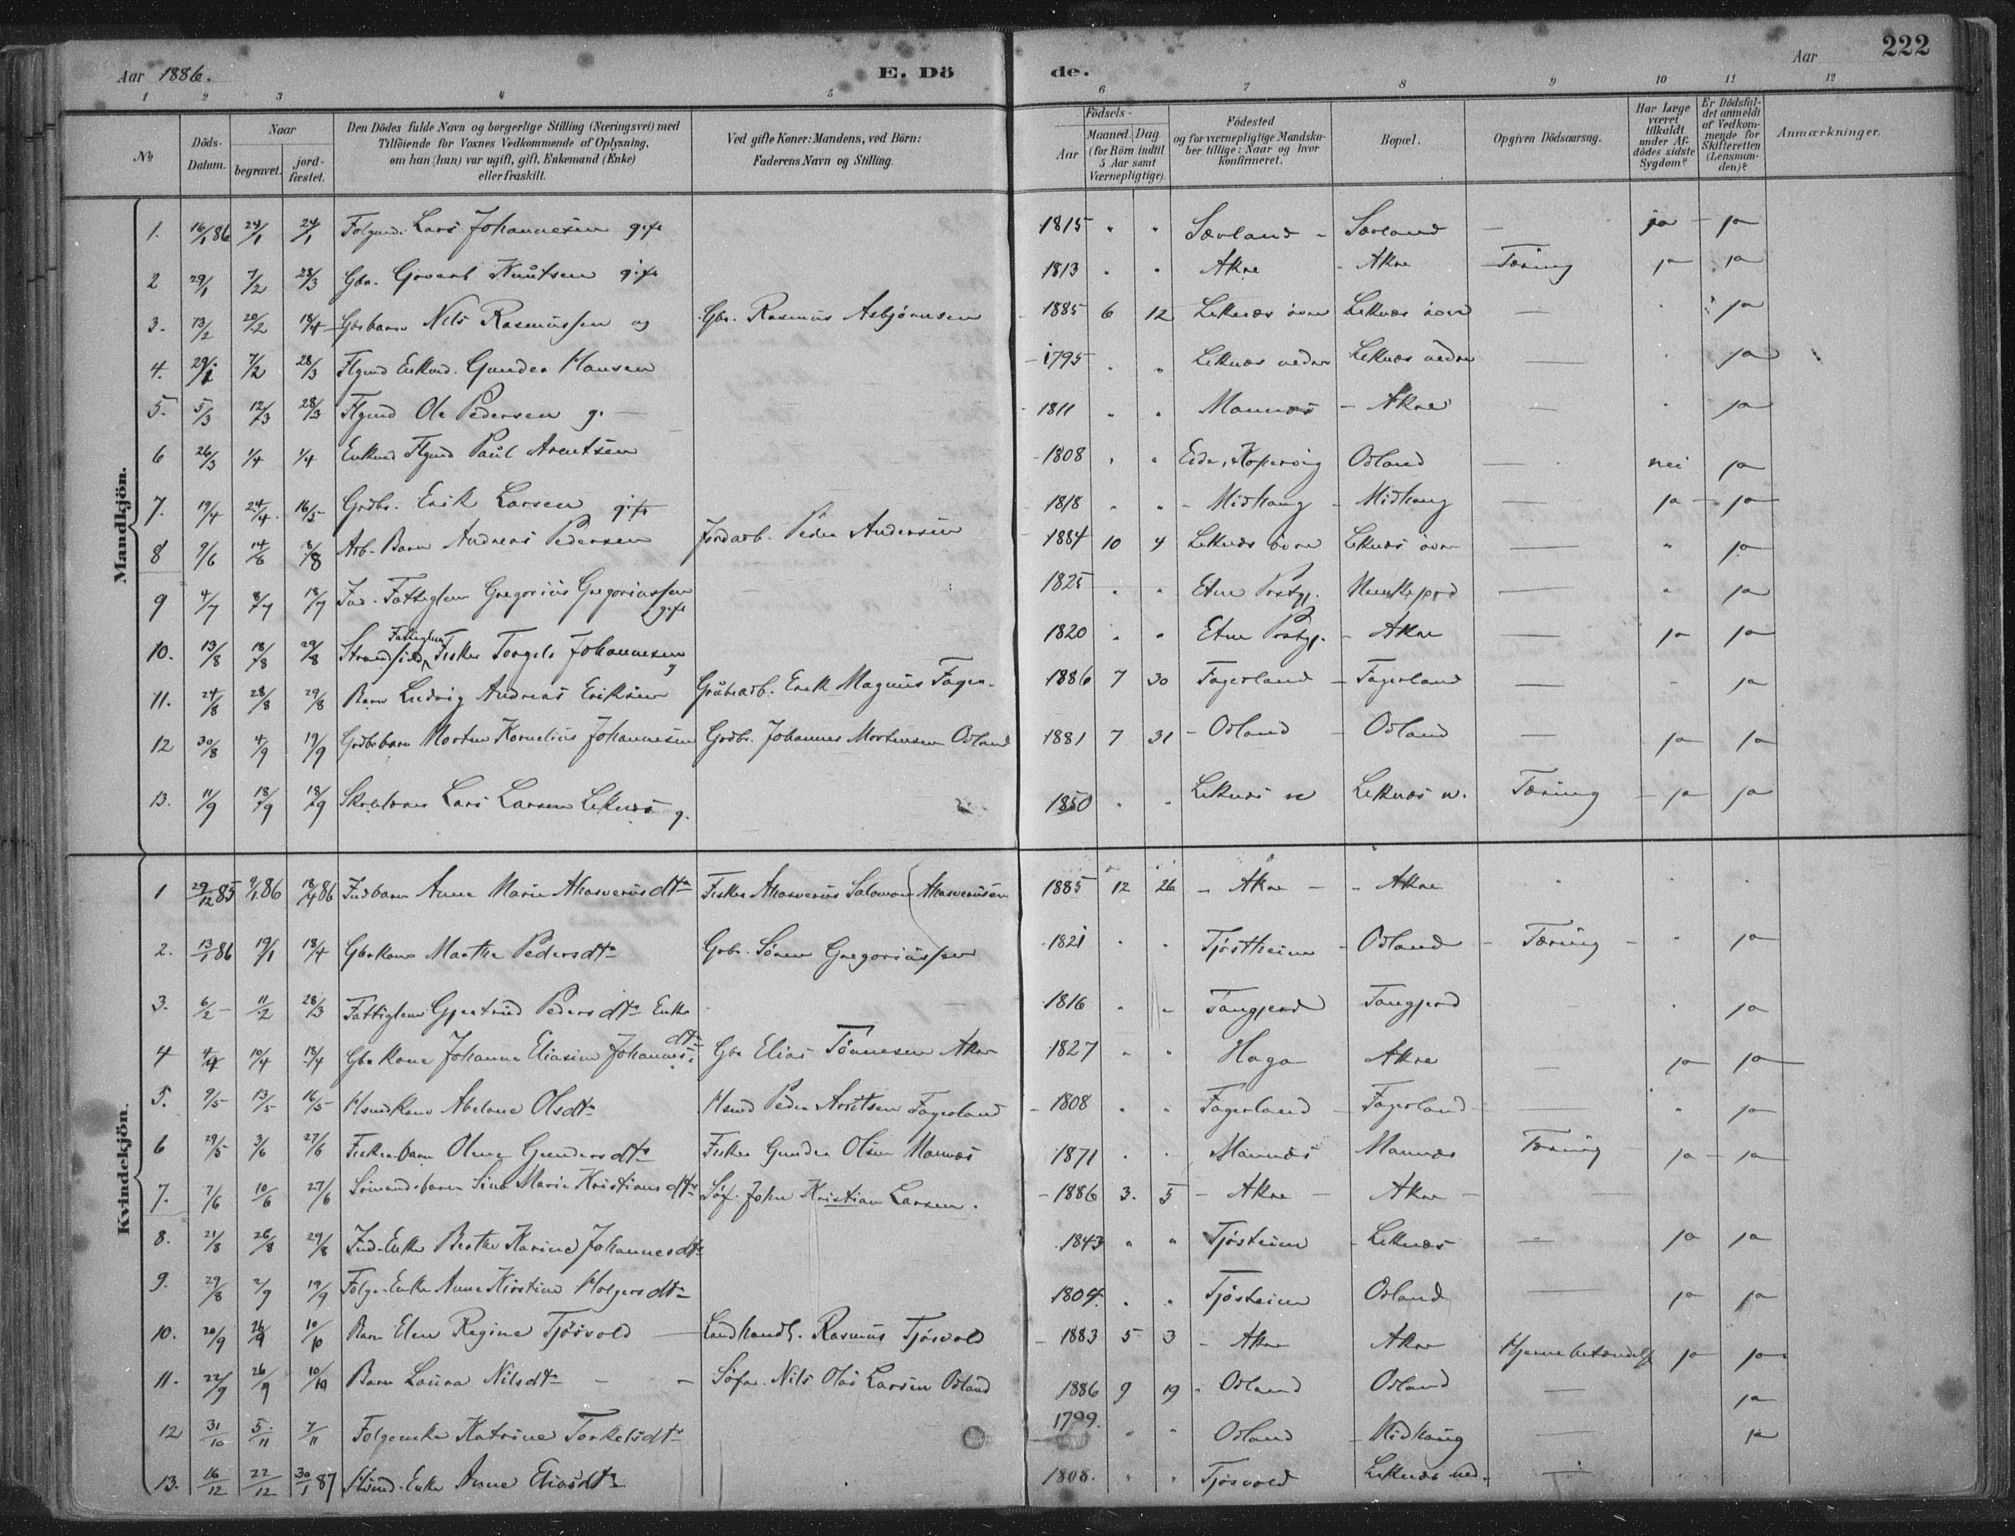 Aar 1886. E. Dö de. Aar 222
1 2 3 4 5 6 7 8 9 10 11 12
No Döds-Datum. Naar begravet. jord-fæstet. Den Dödes fulde Navn og borgerlige Stilling (Næringsvei) med Tilföiende for Voxnes Vedkommende af Oplysning, om han (hun) var ugift, gift, Enkemand (Enke) eller fraskilt. Ved gifte Koner: Mandens, ved Börn: Faderens Navn og Stilling. Födsels- Aar Maaned. Dag. (for Börn indtil 5 Aar samt Værnepligtige). Födested og for værnepligtige Mandskaber tillige: Naar og hvor konfirmeret. Bopæl. Opgiven Dödsaarsag. Har Læge været tilkaldt under Afdödes sidste Sygdom? Er Dödsfaldet anmeldt af Vedkommende for Skifteretten (Lensmanden)? Anmærkninger.
Mandkjön.
1. 16/1 86 24/1 24/1 Folgmd. Lars Johannesen gift 1815 " " Sævland - Sævland — ja - ja
2 29/1 7/2 28/3 Gbr. Govert Knutsen gift 1813 " " Akre - Akre - Tæring ja ja
3. 13/2 20/2 18/4 Gbrbarn Nils Rasmussen ug Gbr. Rasmus Asbjörnsen 1885 6 12 Leknæs övre Leknæs övre — ja
4. 29/1 7/2 28/3 Flgmd Enkmd. Gunder Hansen 1795 " " Leknæs nedre Leknæs nedre — ja
5. 5/3 12/3 28/3 Flgmd Ole Pedersen g. — 1811 " " Mannæs - Akre — ja
6 26/3 1/4 1/4 Enkmd Flgmd Paul Arentsen 1808 " " Eide, Kopervig Odland — nei ja
7. 19/4 24/4 16/5 Grdbr. Erik Larsen gift 1818 " " - Midhaug - Midhaug — ja - ja
8 9/6 14/6 8/8 Arb. Barn Andreas Pedersen Jordarb. Peder Andersen 1884 10 4 Leknæs övre Leknæs övre — " ja
9 4/7 8/7 18/7 Ind. Fattiglem Gregorius Gregoriussen gift 1825 " " Etne Prstgj. — " ja
10. 13/8 18/8 29/8 Strandsidd. Fattiglem Fisker Torgils Johannesen g 1820 " " Etne Prstgj. - Akre ja ja
11. 24/8 28/8 29/8 Barn Ludvig Andreas Eriksen Grubearb. Erik Magnus Fager- 1886 7 30 Fagerland - Fagerland — - ja
12 30/8 4/9 19/9 Grdbrbarn Morten Kornelius Johannesen Grdbr. Johannes Mortensen Odland 1881 7 31 - Odland - Odland — ja ja
13. 11/9 18/9 18/9 Lars Larsen Leknæs g. 1850 " " Leknæs n Leknæs n. Tæring - ja ja
Kvindekjön.
1 29/12 85 9/1 86 18/4 86 Indbarn Anne Marie Ahasverusdtr Fisker Ahasverus Salomon Ahasverusen 1885 12 26 - Akre - - Akre
2. 13/1 86 19/1 18/4 Gbrkone Marthe Pedersdtr Grbr. Sören Gregoriussen 1821 " " Tjöstheim - Odland - Tæring - " ja
3. 6/2 - 11/2 28/3 Fattiglem Gjertrud Pedersdtr Enke 1816 " " Tangjerd Tangjerd — ja
4 4/4 10/4 18/4 Gbrkone Johanne Eliasine Johannesdtr Gbr Elias Tönnesen Akre 1827 " " Haga Akre — ja ja
5. 9/5 13/5 16/5 Hsmdkone Abelone Olsdtr Hsmd Peder Fagerland 1808 " " Fagerland - Fagerland — " ja
6 29/5 3/6 27/6 Fiskerbarn Olene Gundersdtr Fisker Gunder Olsen Mannæs 1871 " " Mannæs Mannæs Tæring - ja - ja
7. 7/6 10/6 27/6 Sömandsbarn Sina Marie Kristiansdtr Söf. John Kristian Larsen. 1886 3. 5 - Akre - Akre -
8. 21/8 26/8 29/8 Ind. Enke Berthe Karine Johannesdtr 1843 " " Tjösteim - Leknæs — ja ja
9. 29/8 2/9 19/9 Folge-Enke Anne Kirstine Holgersdtr 1804. " " Tjösteim Odland — ja ja
10. 20/9 26/9 10/10 Barn Elen Regine Tjösvold — Landhandl. Rasmus Tjösvold 1883 5 3 - Akre Akre Hjernebetændelse ja ja
11. 22/9 26/9 10/10 Barn Laura Nilsdtr - - Söfar. Nils Olai Larsen Odland 1886 9 19 - Odland Odland — ja
12 31/10 5/11 7/11 Folgeenke Katrine Torkelsdtr 1799. " " Odland - Midhaug — ja
13. 16/12 22/12 30/1 87 Hsmd. Enke Anne Eliasdtr 1808. " " Tjösvold Leknæs ned. —